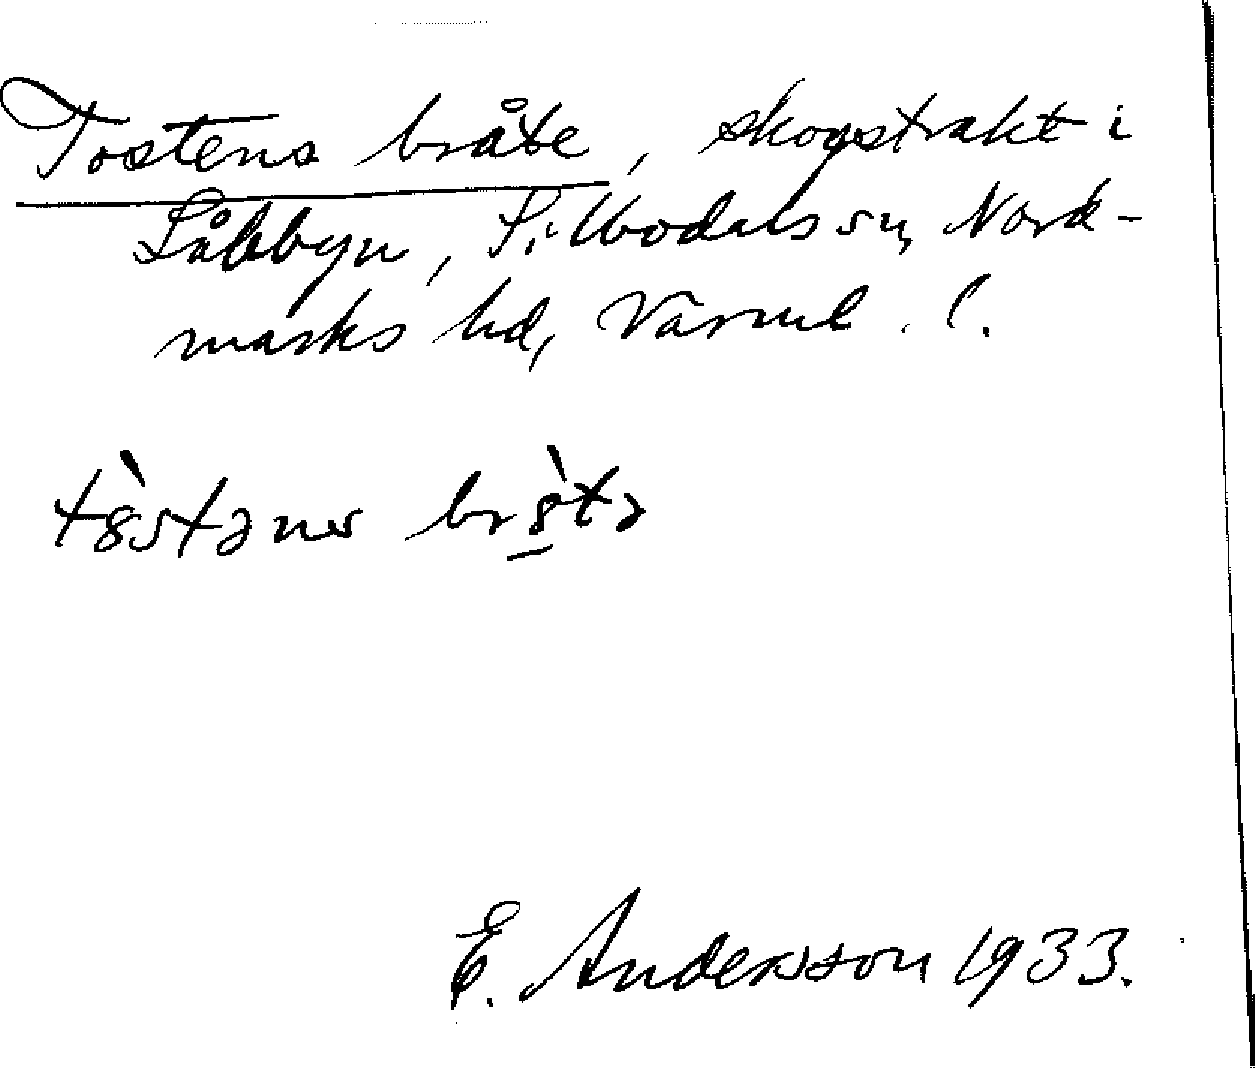 Tostens bråte, skogstrakt i
Låbbyn, Sillbodals sn, Nord-
marks hd, Värml. l.
tò̀stəns bròtə
E. Andersson 1933.